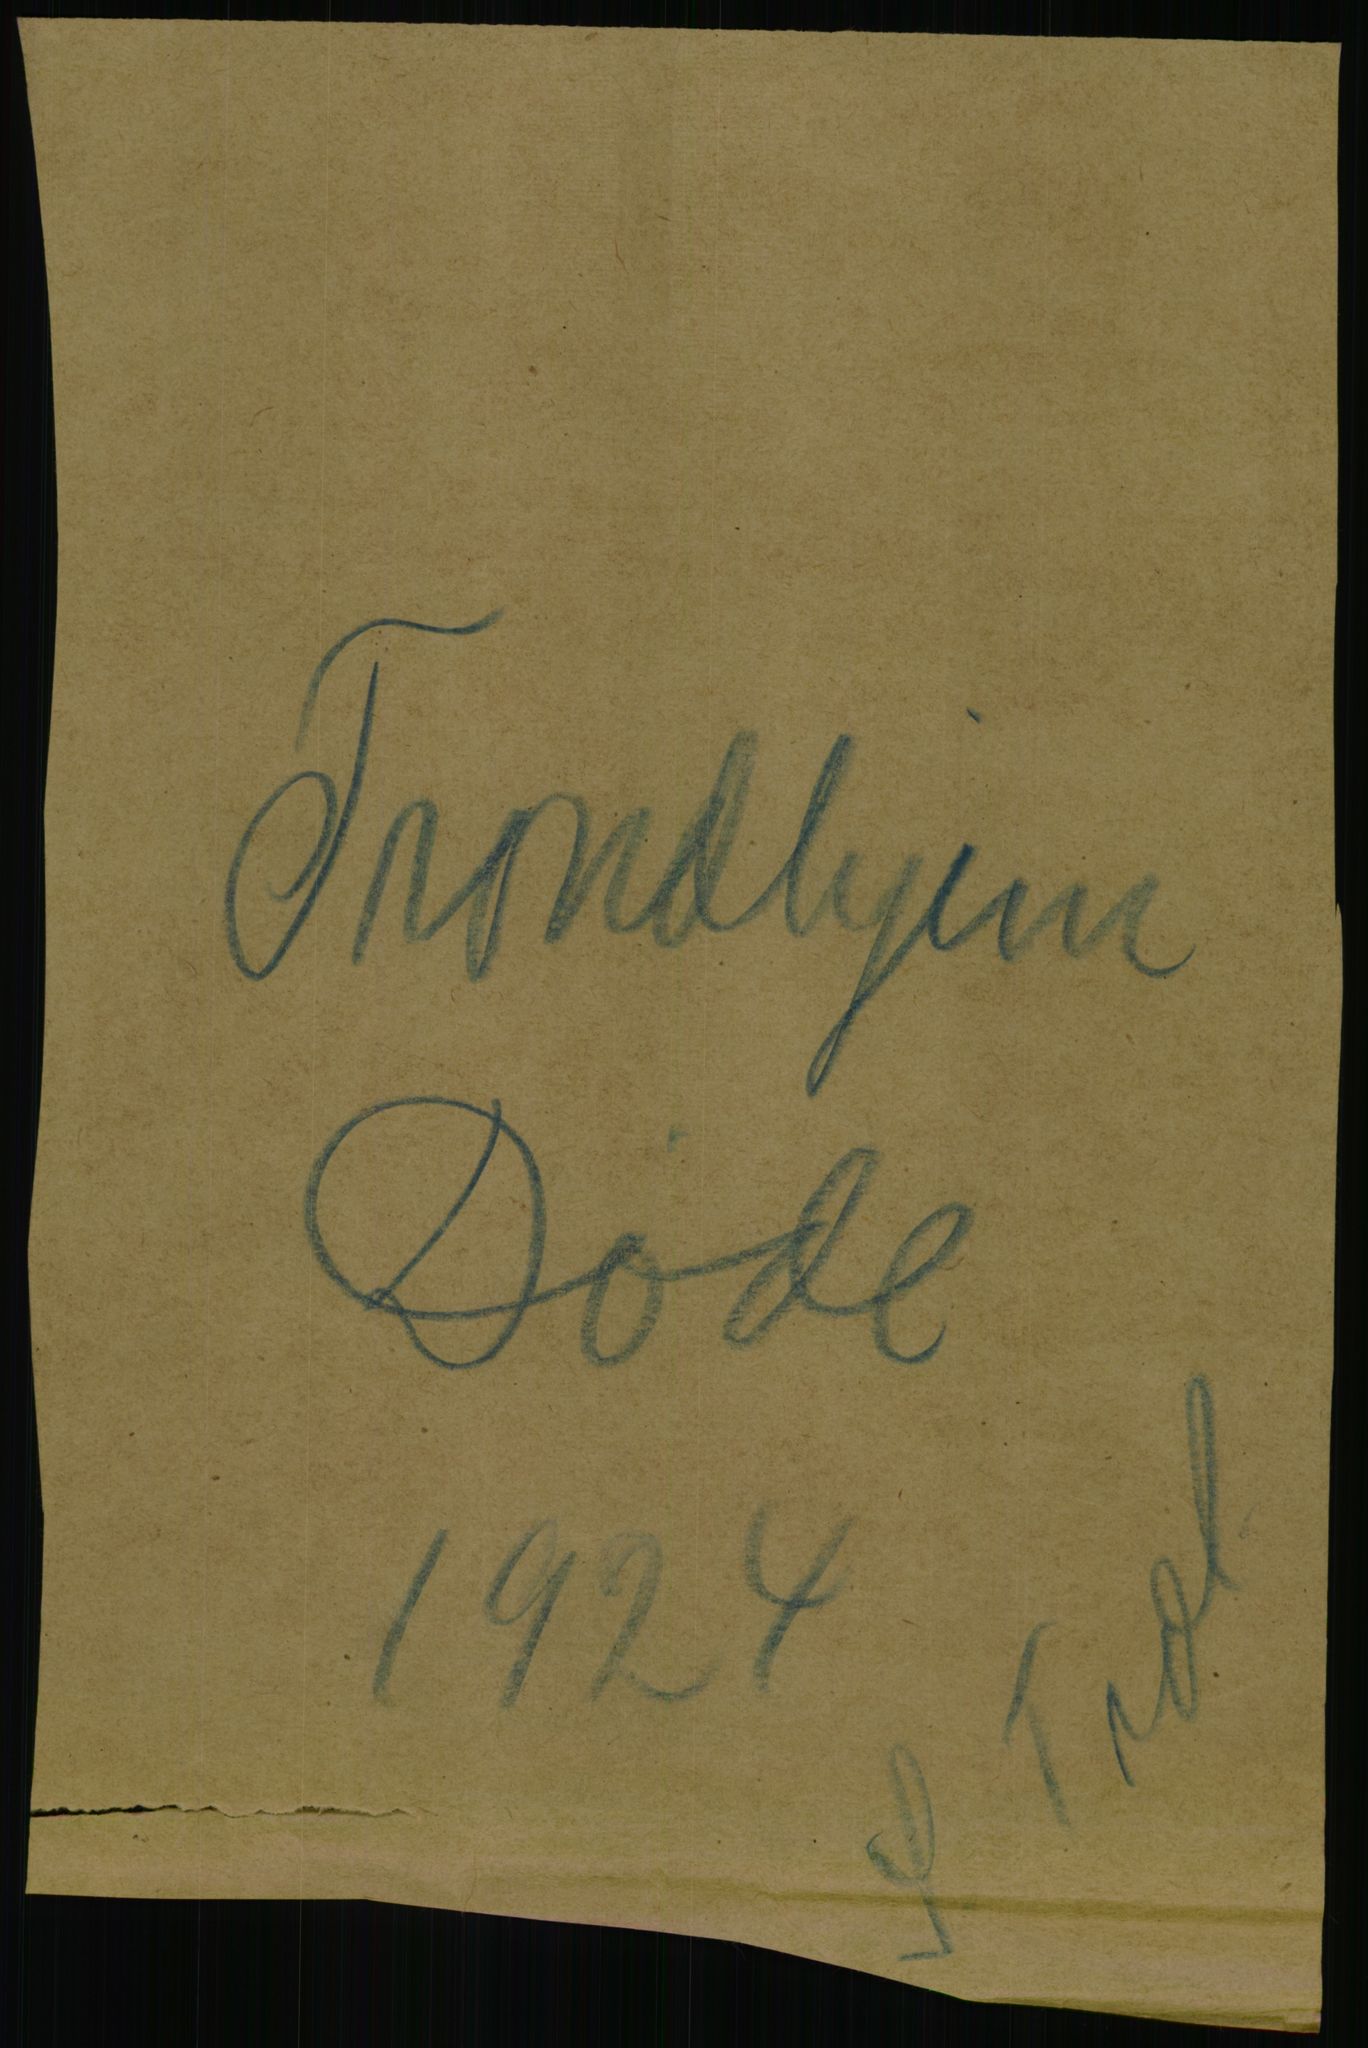 Trondhjem
Døde
1924
S Trøl.